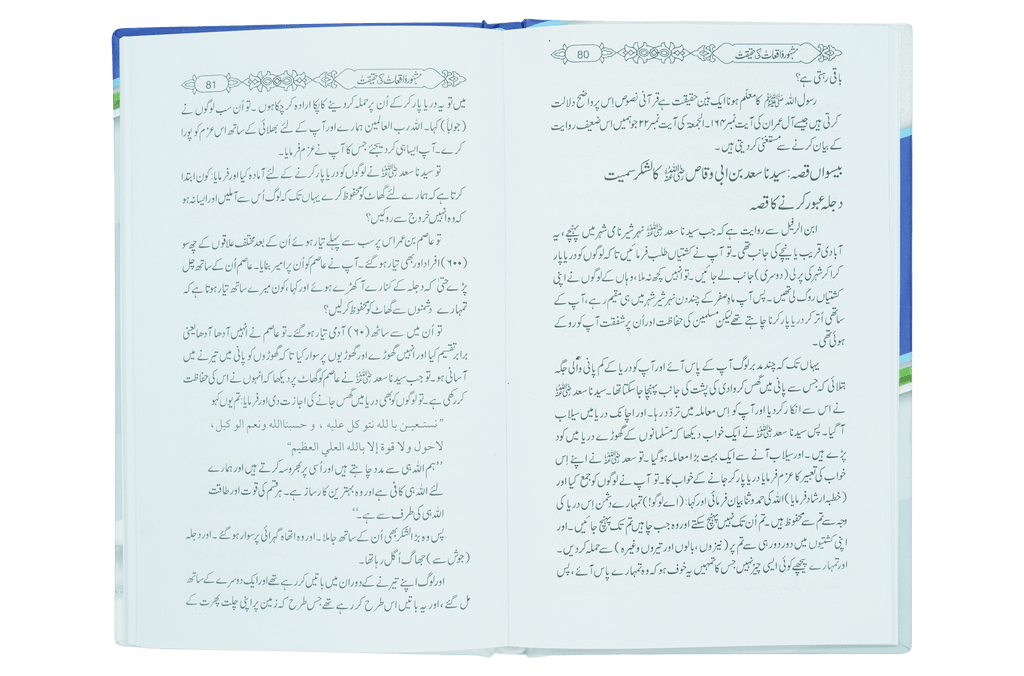 80
مشہور واقعات کی حقیقت
باقی رہتی ہے؟
رسول اللہ ﷺ کا معلّم ہونا ایک بیّن حقیقت ہے قرآنی نصوص اِس پر واضح دلالت
کرتی ہیں جیسے آل عمران کی آیت نمبر ۱۶۴۔ الجمعۃ کی آیت نمبر ۲۲ جو ہمیں اس ضعیف روایت
کے بیان کرنے سے مستغنی کر دیتی ہیں۔
بیسواں قصہ: سیدنا سعد بن ابی وقاص رضی اللہ عنہ کا لشکر سمیت
دجلہ عبور کرنے کا قصہ
ابن الرفیل سے روایت ہے کہ جب سیدنا سعد رضی اللہ عنہ نہر شیر نامی شہر میں پہنچے، یہ
آبادی قریب یا نیچے کی جانب تھی۔ تو آپ نے کشتیاں طلب فرمائیں تا کہ لوگوں کو دریا پار
کرا کر شہر کی پرلی (دوسری) جانب لے جائیں۔ تو انہیں کچھ نہ ملا، وہاں کے لوگوں نے اپنی
کشتیاں روک لی تھیں۔ پس آپ ماہِ صفر کے چند دن نہر شیر شہر میں ہی مقیم رہے، آپ کے
ساتھی اُتر کر دریا پار کرنا چاہتے تھے لیکن مسلمین کی حفاظت اور اُن پر شفقت آپ کو روکے
ہوئی تھی۔
یہاں تک کہ چند مدبر لوگ آپ کے پاس آئے اور آپ کو دریا کے کم پانی والی جگہ
بتلائی کہ جس سے پانی میں گھس کر وادی کی پشت کی جانب پہنچا جا سکتا تھا۔ سیدنا سعد رضی اللہ عنہ
نے اس سے انکار کر دیا اور آپ کو اِس معاملہ میں تردّد رہا۔ اور اچانک دریا میں سیلاب
آ گیا۔ پس سیدنا سعد رضی اللہ عنہ نے ایک خواب دیکھا کہ مسلمانوں کے گھوڑے دریا میں کود
پڑے ہیں۔ اور سیلاب آنے سے ایک بہت بڑا معاملہ ہو گیا۔ تو سعد رضی اللہ عنہ نے اپنے اِس
خواب کی تعبیر کا عزم فرمایا دریا پار کر جانے کے خواب کا۔ تو آپ نے لوگوں کو جمع کیا اور
(خطبہ ارشاد فرمایا) اللہ کی حمد و ثنا بیان فرمائی اور کہا: (اے لوگو!) تمہارے دشمن اِس دریا کی
وجہ سے تم سے محفوظ ہیں۔ تم اُن تک نہیں پہنچ سکتے اور وہ جب چاہیں تم تک پہنچ جائیں۔ اور
اپنی کشتیوں میں دور دور ہی سے تم پر (نیزوں، بالوں اور تیروں وغیرہ) سے حملہ کر دیں۔
اور تمہارے پیچھے کوئی ایسی چیز نہیں جس کا تمہیں یہ خوف ہو کہ وہ تمہارے پاس آئے، پس
81
مشہور واقعات کی حقیقت
میں تو یہ دریا پار کر کے اُن پر حملہ کر دینے کا پکا ارادہ کر چکا ہوں۔ تو اُن سب لوگوں نے
(جواباً) کہا۔ اللہ رب العالمین ہمارے اور آپ کے لئے بھلائی کے ساتھ اس عزم کو پورا
کرے۔ آپ ایسا ہی کر دیجئے جس کا آپ نے عزم فرمایا۔
تو سیدنا سعد رضی اللہ عنہ نے لوگوں کو دریا پار کرنے کے لئے آمادہ کیا اور فرمایا: کون ابتدا
کرتا ہے کہ ہمارے لئے گھاٹ کو محفوظ کرے یہاں تک کہ لوگ اُس سے آملیں اور ایسا نہ ہو
کہ وہ انہیں خروج سے روکیں؟
تو عاصم بن عمر اس پر سب سے پہلے تیار ہوئے اُن کے بعد مختلف علاقوں کے چھ سو
(۶۰۰) افراد اور بھی تیار ہو گئے۔ آپ نے عاصم کو اُن پر امیر بنایا۔ عاصم اُن کے ساتھ چل
پڑے حتیٰ کہ دجلہ کے کنارے آ کھڑے ہوئے اور کہا، کون میرے ساتھ تیار ہوتا ہے کہ
تمہارے دشمنوں سے گھاٹ کو محفوظ کر لیں؟
تو اُن میں سے ساٹھ (۶۰) آدمی تیار ہو گئے۔ تو عاصم نے انہیں آدھا آدھا یعنی
برابر تقسیم کیا اور انہیں گھوڑے اور گھوڑیوں پر سوار کیا تا کہ گھوڑوں کو پانی میں تیرنے میں
آسانی ہو۔ تو جب سیدنا سعد رضی اللہ عنہ نے عاصم کو گھاٹ پر دیکھا کہ انہوں نے اس کی حفاظت
کر رکھی ہے۔ تو لوگوں کو بھی دریا میں گھس جانے کی اجازت دی اور فرمایا: تم یوں کہو
”نستعین با للہ نتو کل علیہ ، و حسبنا اللہ ونعم الو کیل ،
لاحول ولا قوۃ إلا باللہ العلي العظیم“
’’ہم اللہ ہی سے مدد چاہتے ہیں اور اُسی پر بھروسہ کرتے ہیں اور ہمارے
لئے اللہ ہی کافی ہے اور وہ بہترین کارساز ہے۔ ہر قسم کی قوت اور طاقت
اللہ ہی کی طرف سے ہے۔‘‘
پس وہ بڑا لشکر بھی اُن کے ساتھ جا ملا۔ اور وہ اتھاہ گہرائی پر سوار ہو گئے۔ اور دجلہ
(جوش سے) جھاگ اُگل رہا تھا۔
اور لوگ اپنے تیرنے کے دوران میں باتیں کر رہے تھے اور ایک دوسرے کے ساتھ
مل گئے، اور یہ باتیں اس طرح کر رہے تھے جس طرح کہ زمین پر اپنی چلت پھرت کے